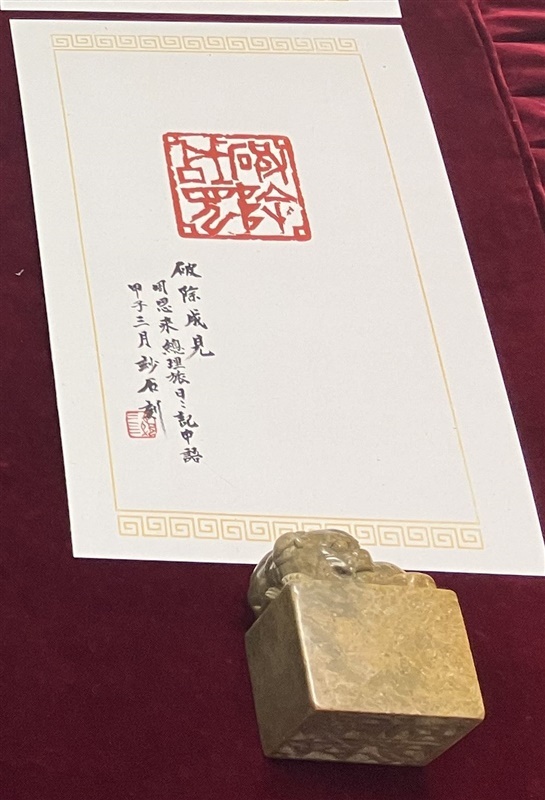 破除成見
周恩来總理旅日〻記中語
甲子三月 石刻